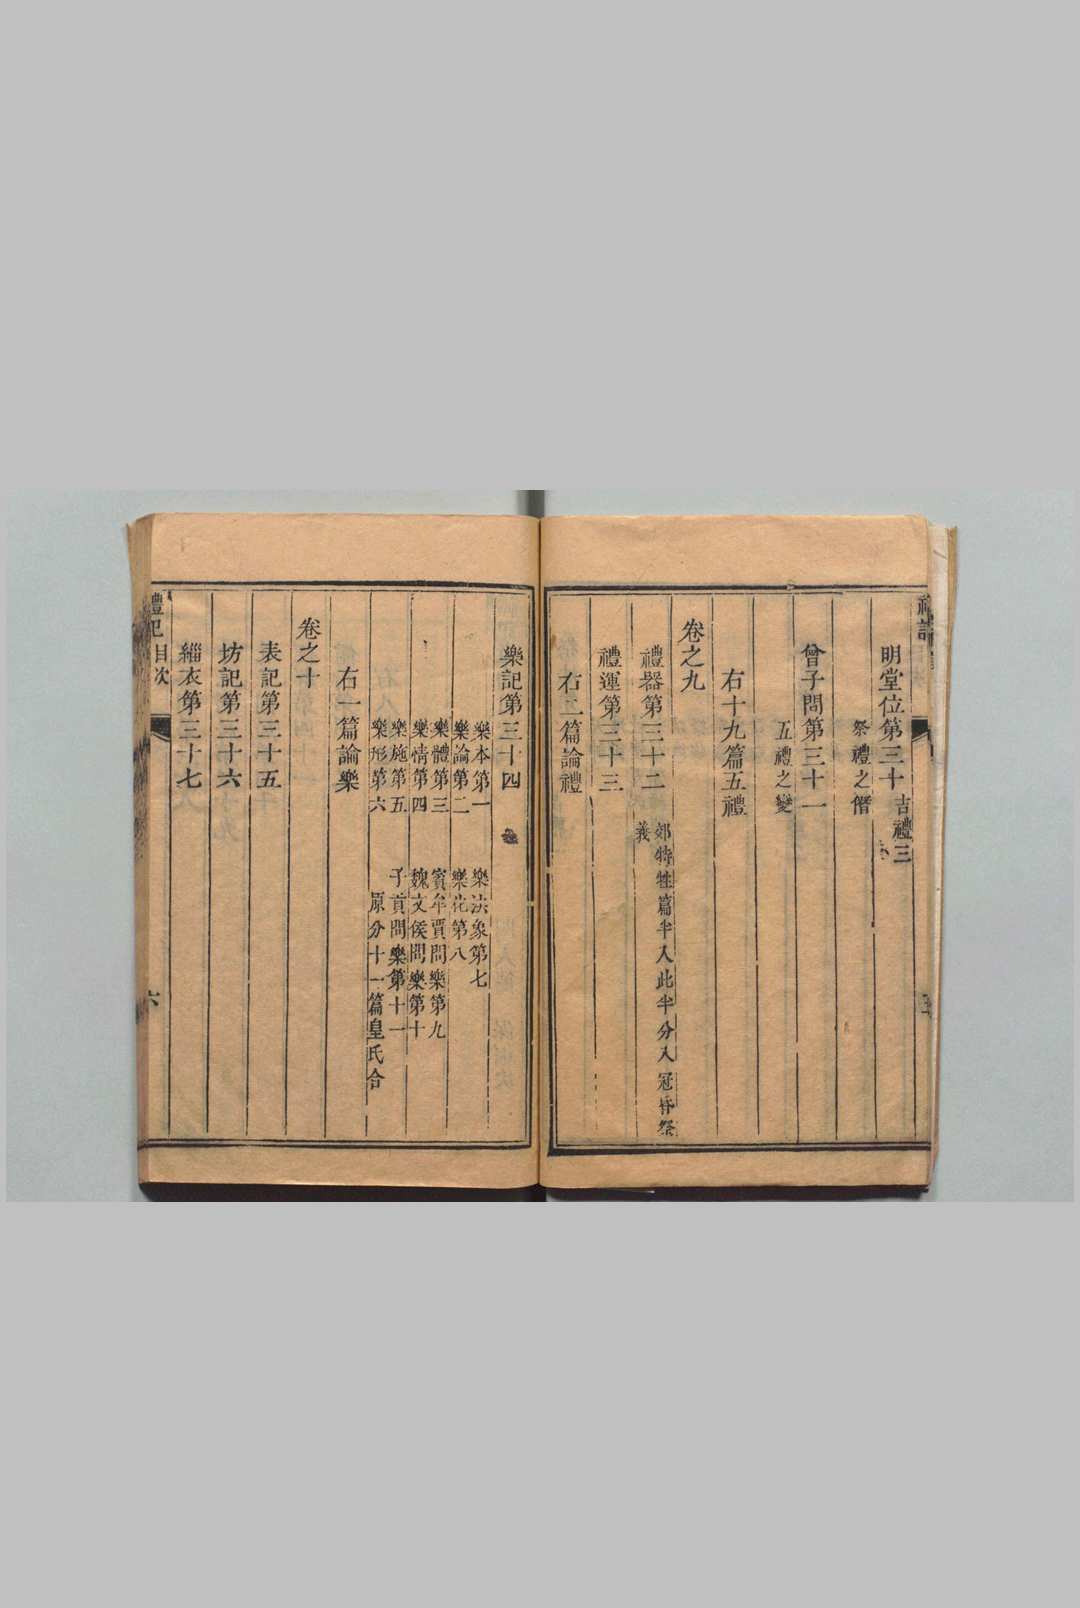 明堂位第三十 吉禮三
祭禮之僭
曾子問第三十一
五禮之變
右十九篇五禮
卷之九
禮器第三十二 郊特牲篇半入此半分入冠昏祭
義
禮運第三十三
右二篇論禮
樂記第三十四
樂本第一 樂法象第七
樂論第二 樂化第八
樂體第三 賓牟賈問樂第九
樂情第四 魏文侯問樂第十
樂施第五 子貢問樂第十一
樂形第六 原分十一篇皇氏合
右一篇論樂
卷之十
表記第三十五
坊記第三十六
緇衣第三十七
禮記 目次 六